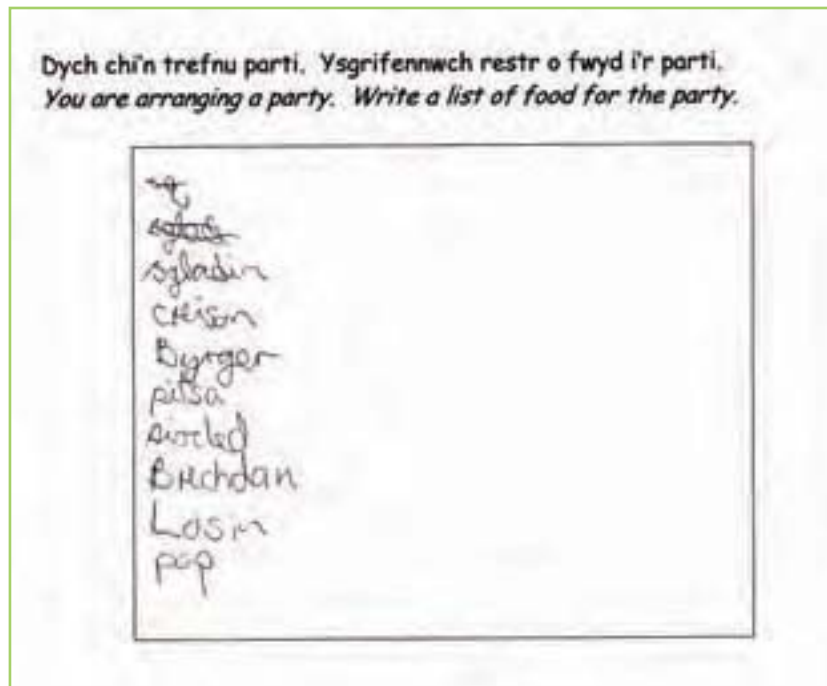 Dych chi'n trefnu parti. Ysgrifennwch restr o fwyd i'r parti.
You are arranging a party. Write a list of food for the party.
sglodin
creison
Byrger
pitsa
siocled
Brechdan
Losin
pop